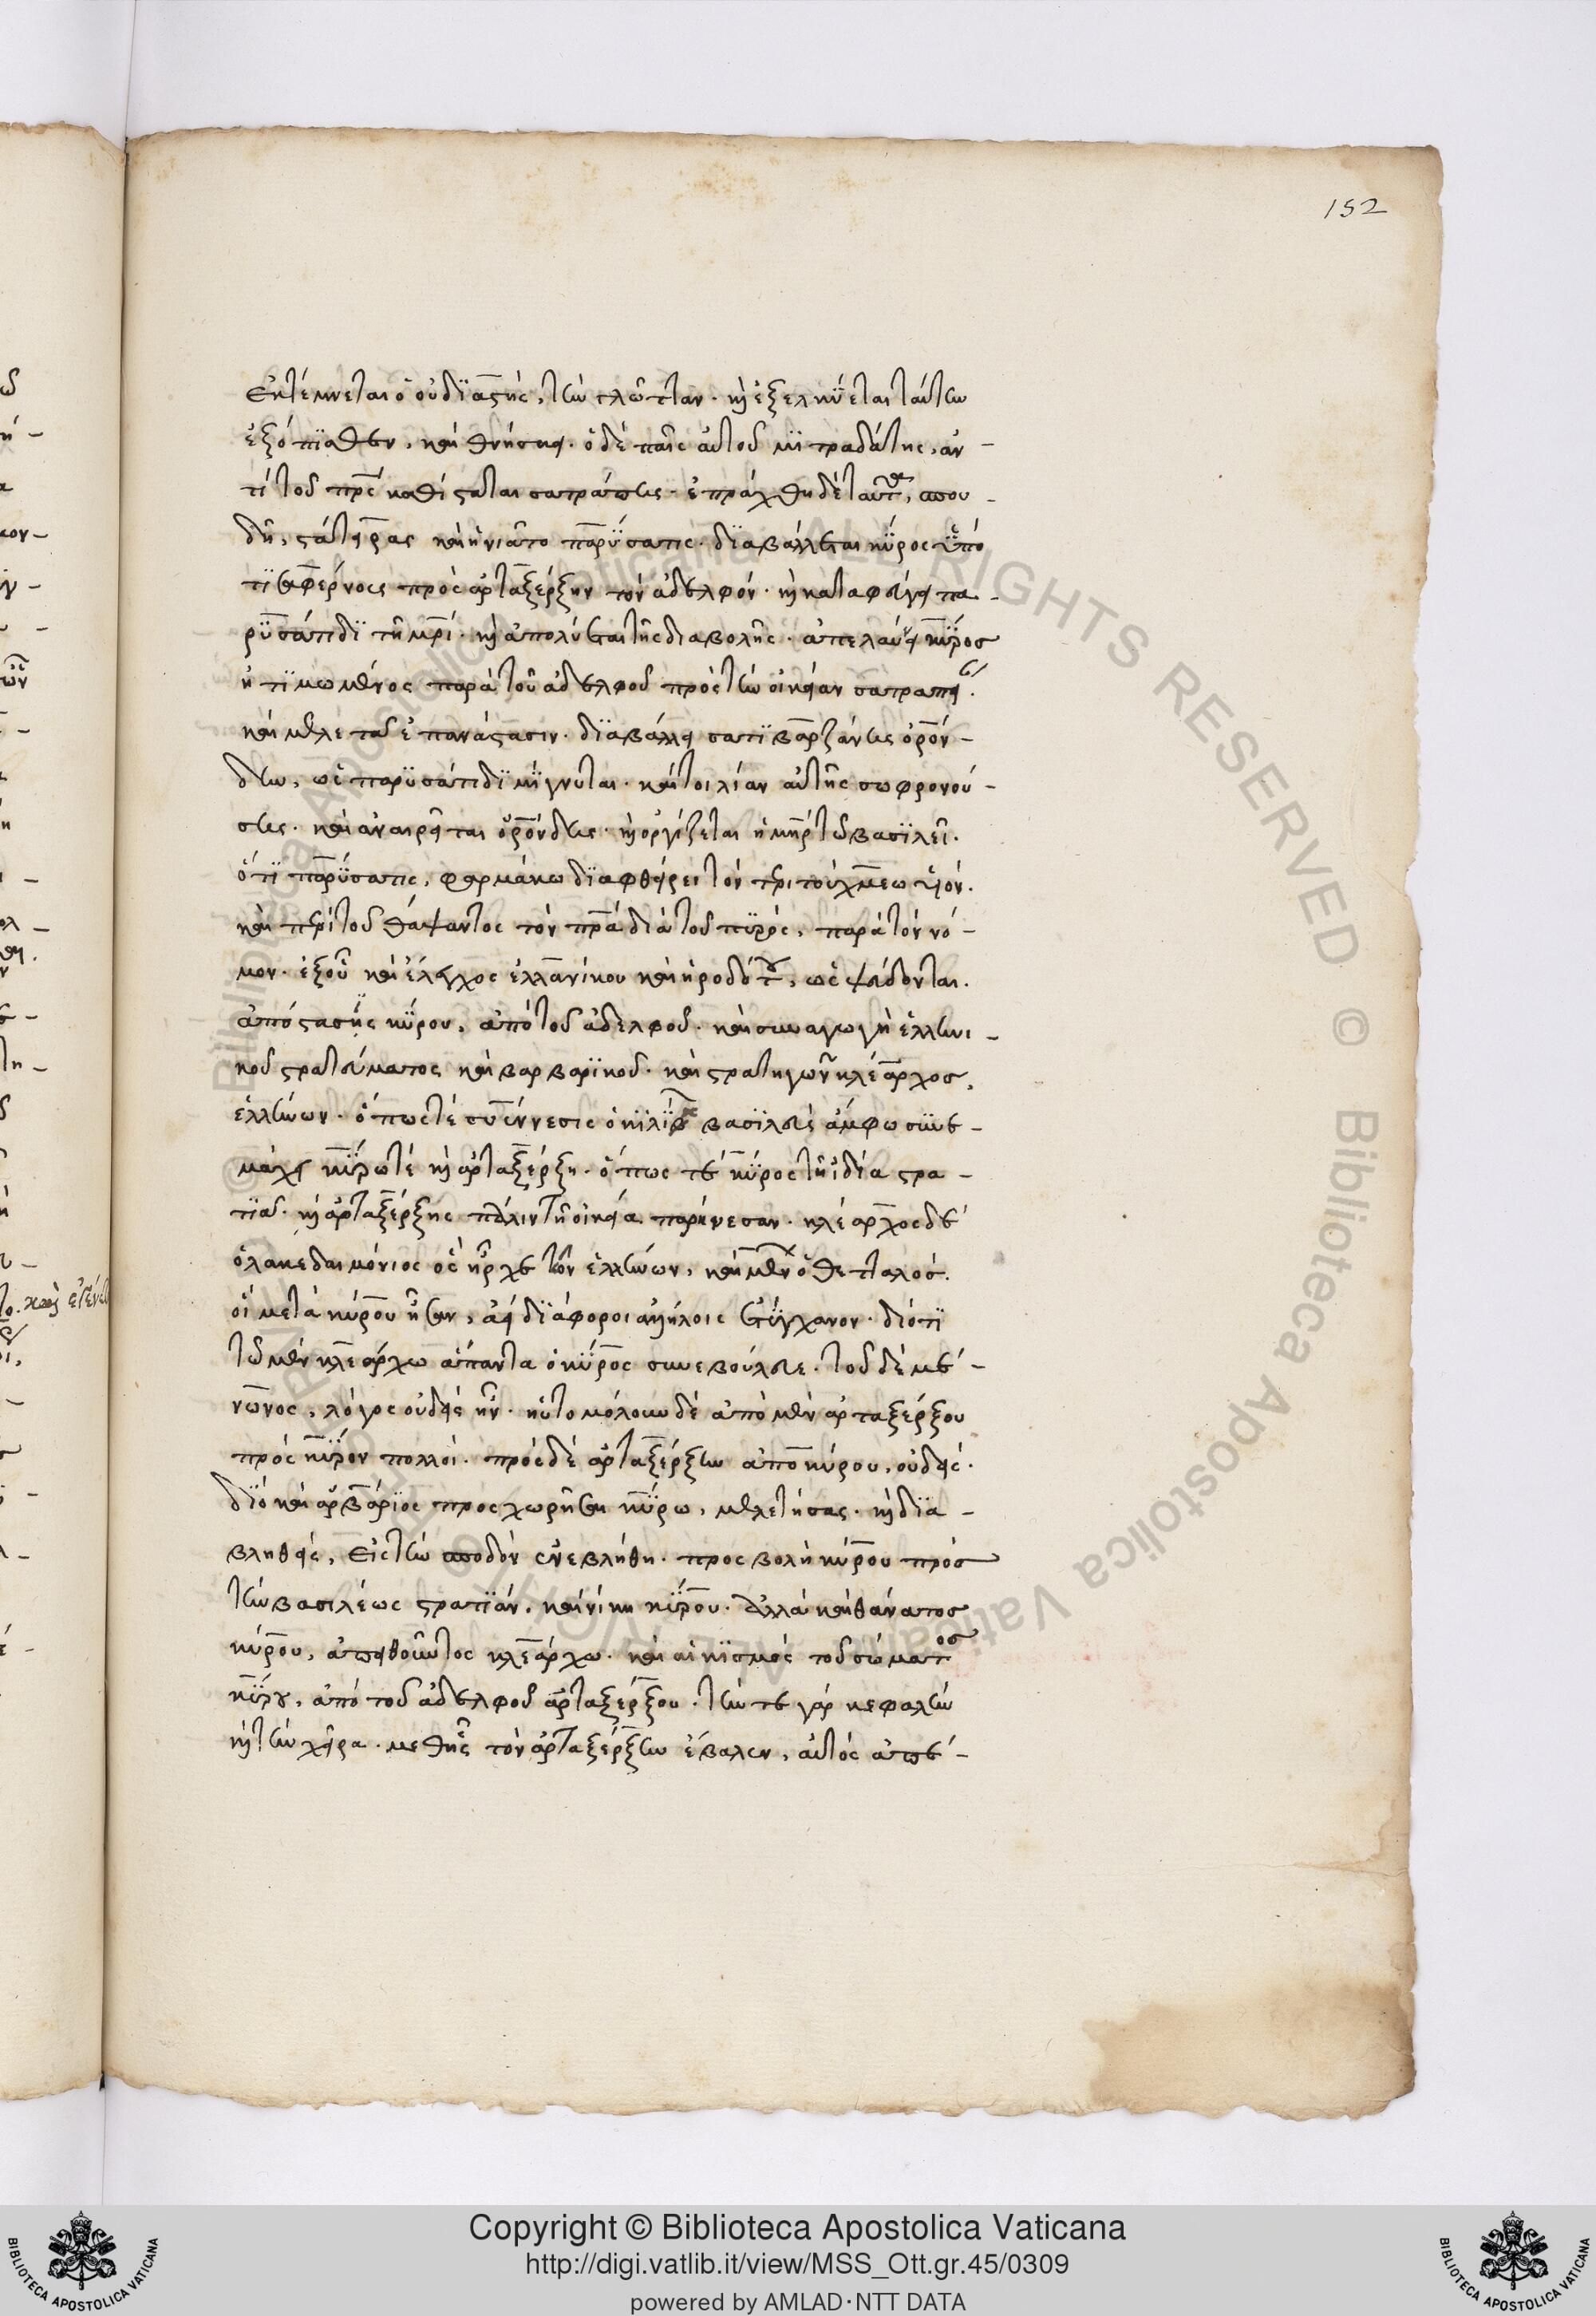 152
ἐκτέμνεται ὁ οὐδϊάστης, τὴν γλῶτταν. καὶ ἐξελκΰεται ταύτην
ἐξόπϊσθεν, καὶ θνήσκει. ὁ δὲ παῖς αὐτοῦ μϊτραδάτης, ἀν-
τὶ τοῦ πρς καθίσταται σατράπης. ἐπράχθη δὲ ταῦτα, σπου-
δῆ, στατείρας καὶ ἠνιᾶτο παρΰσατις. διαβάλλεται κῦρος ὑπὸ
τϊσαφέρνους πρὸς ἀρταξέρξην τὸν ἀδελφόν. καὶ καταφεύγει πα-
ρϋσάτιδϊ τῆ μρί. καὶ ἀπολύεται τῆς διαβολῆς. ἀπελαύνει κῦρος
ἠτϊμωμένος παρὰ τοῦ ἀδελφοῦ πρὸς τὴν οἰκείαν σατραπεί.
καὶ μελετᾶ ἐπανάστασιν. δϊαβάλλει σατϊβαρζάνης ὀρόν-
δην, ὡς παρϋσάτιδϊ μίγνυται. καίτοι λίαν αὐτῆς σωφρονού-
σης. καὶ ἀναιρεῖται ὀρόνδης. καὶ ὀργίζεται ἡ μηρ τῶ βασϊλεῖ.
ὅτϊ παρΰσατις, φαρμάκω δϊαφθείρει τὸν τριτούχμεω υἱόν.
καὶ περὶ τοῦ θάψαντος τὸν πρα διὰ τοῦ πυρὸς, παρὰ τὸν νό-
μον. ἐξ οὗ καὶ ἔλεγχος ἑλλανίκου καὶ ἡροδότου, ὡς ψεύδονται.
ἀπόστασις κύρου, ἀπὸ τοῦ ἀδελφοῦ. καὶ συναγωγὴ ἑλληνι-
κοῦ στρατεύματος καὶ βαρβαρϊκοῦ. καὶ στρατηγῶν κλέαρχος,
ἑλλήνων. ὅπως τὲ συέννεσις ὁ κϊλίκων βασϊλεὺς ἄμφω συνε-
μάχει κύρω τὲ καὶ ἀρταξέρξη. ὅπως τε κῦρος τῆ ἰδία στρα-
τϊᾶ. καὶ ἀρταξέρξης πάλιν τῆ οἰκεία παρήνεσαν. κλέαρχος δὲ
ὁ λακεδαιμόνιος ὃς ἦρχε τῶν ἑλλήνων, καὶ μένων ὁ θετταλός.
οἳ μετὰ κύρου ἦσαν, ἀεὶ δϊάφοροι ἀλλήλοις ἐτύγχανον. διότϊ
τῶ μὲν κλεάρχω ἅπαντα ὁ κῦρος συνεβούλευε. τοῦ δὲ μέ-
νωνος, λόγος οὐδεὶς ἦν. ηὐτομόλουν δὲ ἀπὸ μὲν ἀρταξέρξου
πρὸς κῦρον πολλοί. πρὸς δὲ ἀρταξέρξην ἀπὸ κύρου, οὐδείς.
δϊὸ καὶ ἀρβάρϊος προσχωρῆσαι κύρω, μελετήσας. καὶ δϊα-
βληθεὶς, εἰς τὴν σποδὸν ἐνεβλήθη. προσβολὴ κύρου πρὸς
τὴν βασιλέως στρατϊάν. καὶ νίκη κύρου. ἀλλὰ καὶ θάνατος
κύρου, ἀπειθοῦντος κλεάρχω. καὶ αἰκϊσμὸς τοῦ σώματος
κύρου, ἀπὸ τοῦ ἀδελφοῦ ἀρταξέρξου. τὴν τε γὰρ κεφαλὴν
καὶ τὴν χεῖρα. μεθ' ἧς τὸν ἀρταξέρξην ἔβαλεν, αὐτὸς ἀπέ-
Copyright © Biblioteca Apostolica Vaticana
http://digi.vatlib.it/view/MSS_Ott.gr.45/0309
powered by AMLAD·NTT DATA
BIBLIOTECA APOSTOLICA VATICANA
BIBLIOTECA APOSTOLICA VATICANA